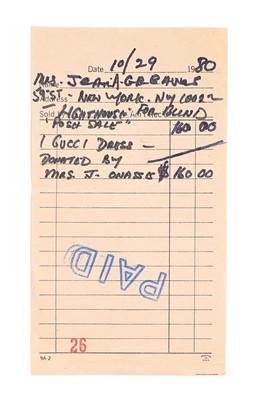 Date 10/29 1980
MRS. JEAN A. GREAVES
Address NEW YORK. NY 10022
Sold LIGHTHOUSE FOR BLIND
"POSH SALE" 160 00
1 GUCCI DRESS —
DONATED BY
MRS. J. ONASSIS $160.00
PAID
26
9A-2